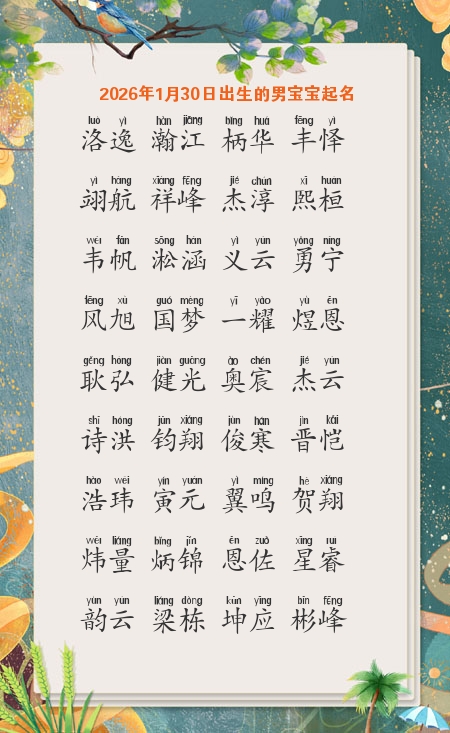 2026年1月30日出生的男宝宝起名
luò yì hàn jiāng bǐng huá fēng yì
洛逸 瀚江 柄华 丰怿
yì háng xiáng fēng jié chún xī huán
翊航 祥峰 杰淳 熙桓
wéi fān sōng hán yì yún yǒng níng
韦帆 淞涵 义云 勇宁
fēng xù guó mèng yī yào yù ēn
风旭 国梦 一耀 煜恩
gěng hóng jiàn guāng ào chén jié yún
耿弘 健光 奥宸 杰云
shī hóng jūn xiáng jùn hán jìn kǎi
诗洪 钧翔 俊寒 晋恺
hào wěi yín yuán yì míng hè xiáng
浩玮 寅元 翼鸣 贺翔
wěi liàng bǐng jǐn ēn zuǒ xīng ruì
炜量 炳锦 恩佐 星睿
yùn yún liáng dòng kūn yīng bīn fēng
韵云 梁栋 坤应 彬峰